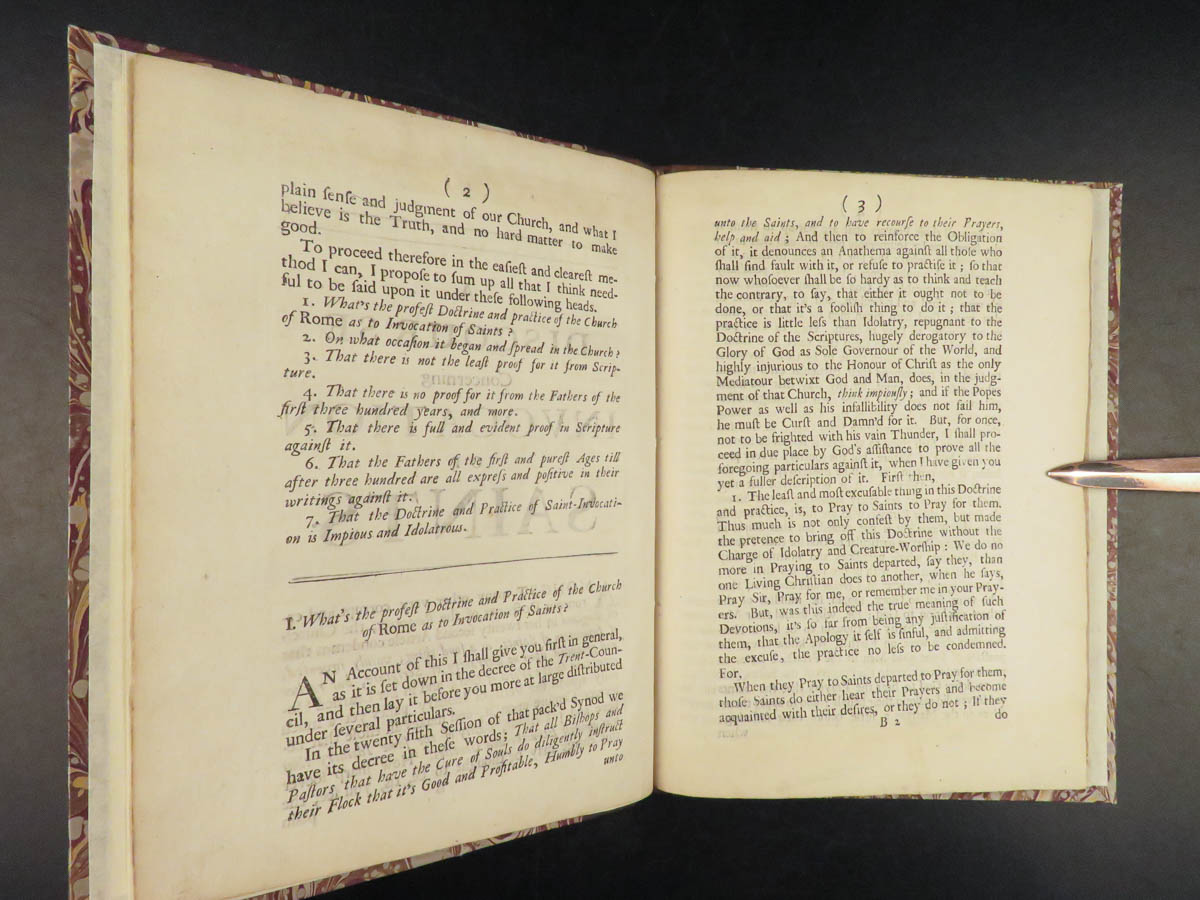 ( 2 )
plain ſenſe and judgment of our Church, and what I
believe is the Truth, and no hard matter to make
good.
To proceed therefore in the eaſieſt and cleareſt me-
thod I can, I propoſe to ſum up all that I think need-
ful to be ſaid upon it under theſe following heads.
1. What's the profeſt Doctrine and practice of the Church
of Rome as to Invocation of Saints?
2. On what occaſion it began and ſpread in the Church?
3. That there is not the leaſt proof for it from Scrip-
ture.
4. That there is no proof for it from the Fathers of the
firſt three hundred years, and more.
5. That there is full and evident proof in Scripture
againſt it.
6. That the Fathers of the firſt and pureſt Ages till
after three hundred are all expreſs and poſitive in their
writings againſt it.
7. That the Doctrine and Practice of Saint-Invocati-
on is Impious and Idolatrous.
I. What's the profeſt Doctrine and Practice of the Church
of Rome as to Invocation of Saints?
AN Account of this I ſhall give you firſt in general,
as it is ſet down in the decree of the Trent-Coun-
cil, and then lay it before you more at large diſtributed
under ſeveral particulars.
In the twenty fifth Seſſion of that pack'd Synod we
have its decree in theſe words; That all Biſhops and
Paſtors that have the Cure of Souls do diligently inſtruct
their Flock that it's Good and Profitable, Humbly to Pray
unto
( 3 )
unto the Saints, and to have recourſe to their Prayers,
help and aid; And then to reinforce the Obligation
of it, it denounces an Anathema againſt all thoſe who
ſhall find fault with it, or refuſe to practiſe it; ſo that
now whoſoever ſhall be ſo hardy as to think and teach
the contrary, to ſay, that either it ought not to be
done, or that it's a fooliſh thing to do it; that the
practice is little leſs than Idolatry, repugnant to the
Doctrine of the Scriptures, hugely derogatory to the
Glory of God as Sole Governour of the World, and
highly injurious to the Honour of Chriſt as the only
Mediatour betwixt God and Man, does, in the judg-
ment of that Church, think impiouſly; and if the Popes
Power as well as his infallibility does not fail him,
he muſt be Curſt and Damn'd for it. But, for once,
not to be frighted with his vain Thunder, I ſhall pro-
ceed in due place by God's aſſiſtance to prove all the
foregoing particulars againſt it, when I have given you
yet a fuller deſcription of it. Firſt then,
1. The leaſt and moſt excuſable thing in this Doctrine
and practice, is, to Pray to Saints to Pray for them.
Thus much is not only confeſt by them, but made
the pretence to bring off this Doctrine without the
Charge of Idolatry and Creature-Worſhip: We do no
more in Praying to Saints departed, ſay they, than
one Living Chriſtian does to another, when he ſays,
Pray Sir, Pray for me, or remember me in your Pray-
ers. But, was this indeed the true meaning of ſuch
Devotions, it's ſo far from being any juſtification of
them, that the Apology it ſelf is ſinful, and admitting
the excuſe, the practice no leſs to be condemned.
For,
When they Pray to Saints departed to Pray for them,
thoſe Saints do either hear their Prayers and become
acquainted with their deſires, or they do not; If they
B 2 do